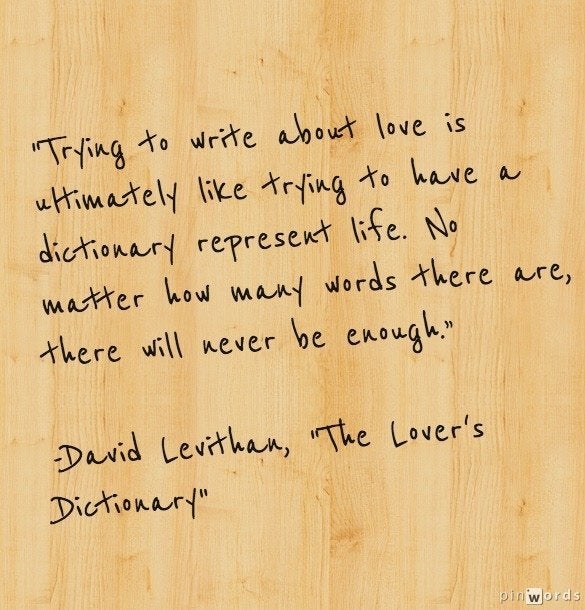 "Trying to write about love is
ultimately like trying to have a
dictionary represent life. No
matter how many words there are,
there will never be enough."
-David Levithan, "The Lover's
Dictionary"
pinwords